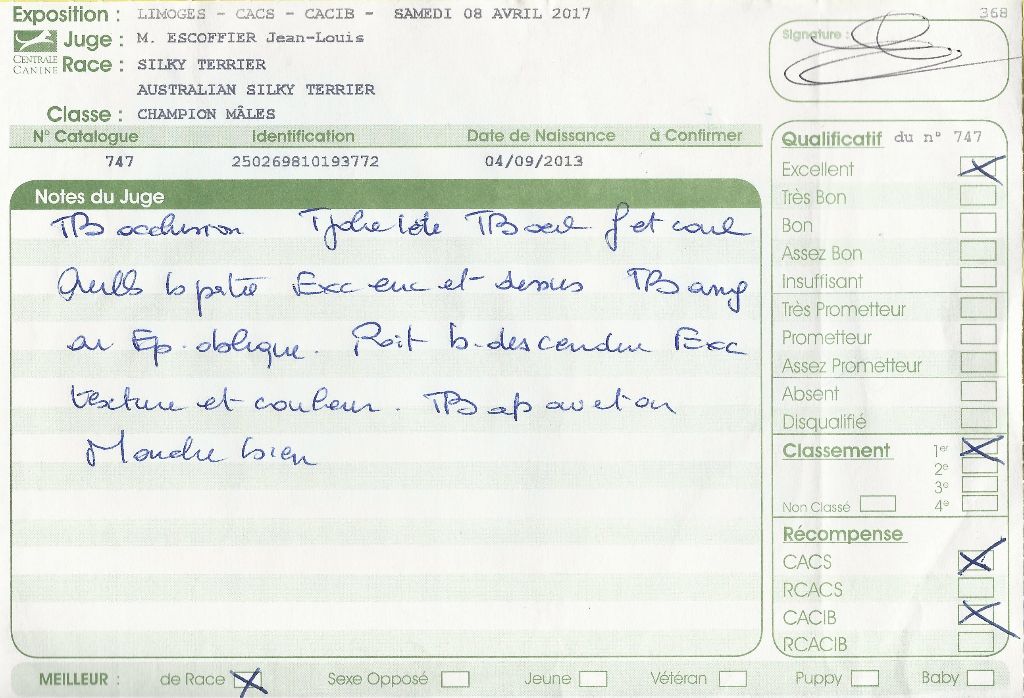 Exposition : LIMOGES - CACS - CACIB - SAMEDI 08 AVRIL 2017
368
Juge : M. ESCOFFIER Jean-Louis
Signature :
CENTRALE CANINE
Race : SILKY TERRIER
AUSTRALIAN SILKY TERRIER
Classe : CHAMPION MÂLES
N° Catalogue Identification Date de Naissance à Confirmer
747 250269810193772 04/09/2013
Notes du Juge
TB occlusion T jolie tête TB oeil f et coul
Oreilles b Exc enc et dessus TB ang
av Ep. oblique. Poit b. descendue Exc
texture et couleur. TB ap av et arr
bien
Qualificatif du n° 747
Excellent
Très Bon
Bon
Assez Bon
Insuffisant
Très Prometteur
Prometteur
Assez Prometteur
Absent
Disqualifié
Classement 1er
2e
3e
Non Classé 4e
Récompense
CACS
RCACS
CACIB
RCACIB
MEILLEUR : de Race Sexe Opposé Jeune Vétéran Puppy Baby